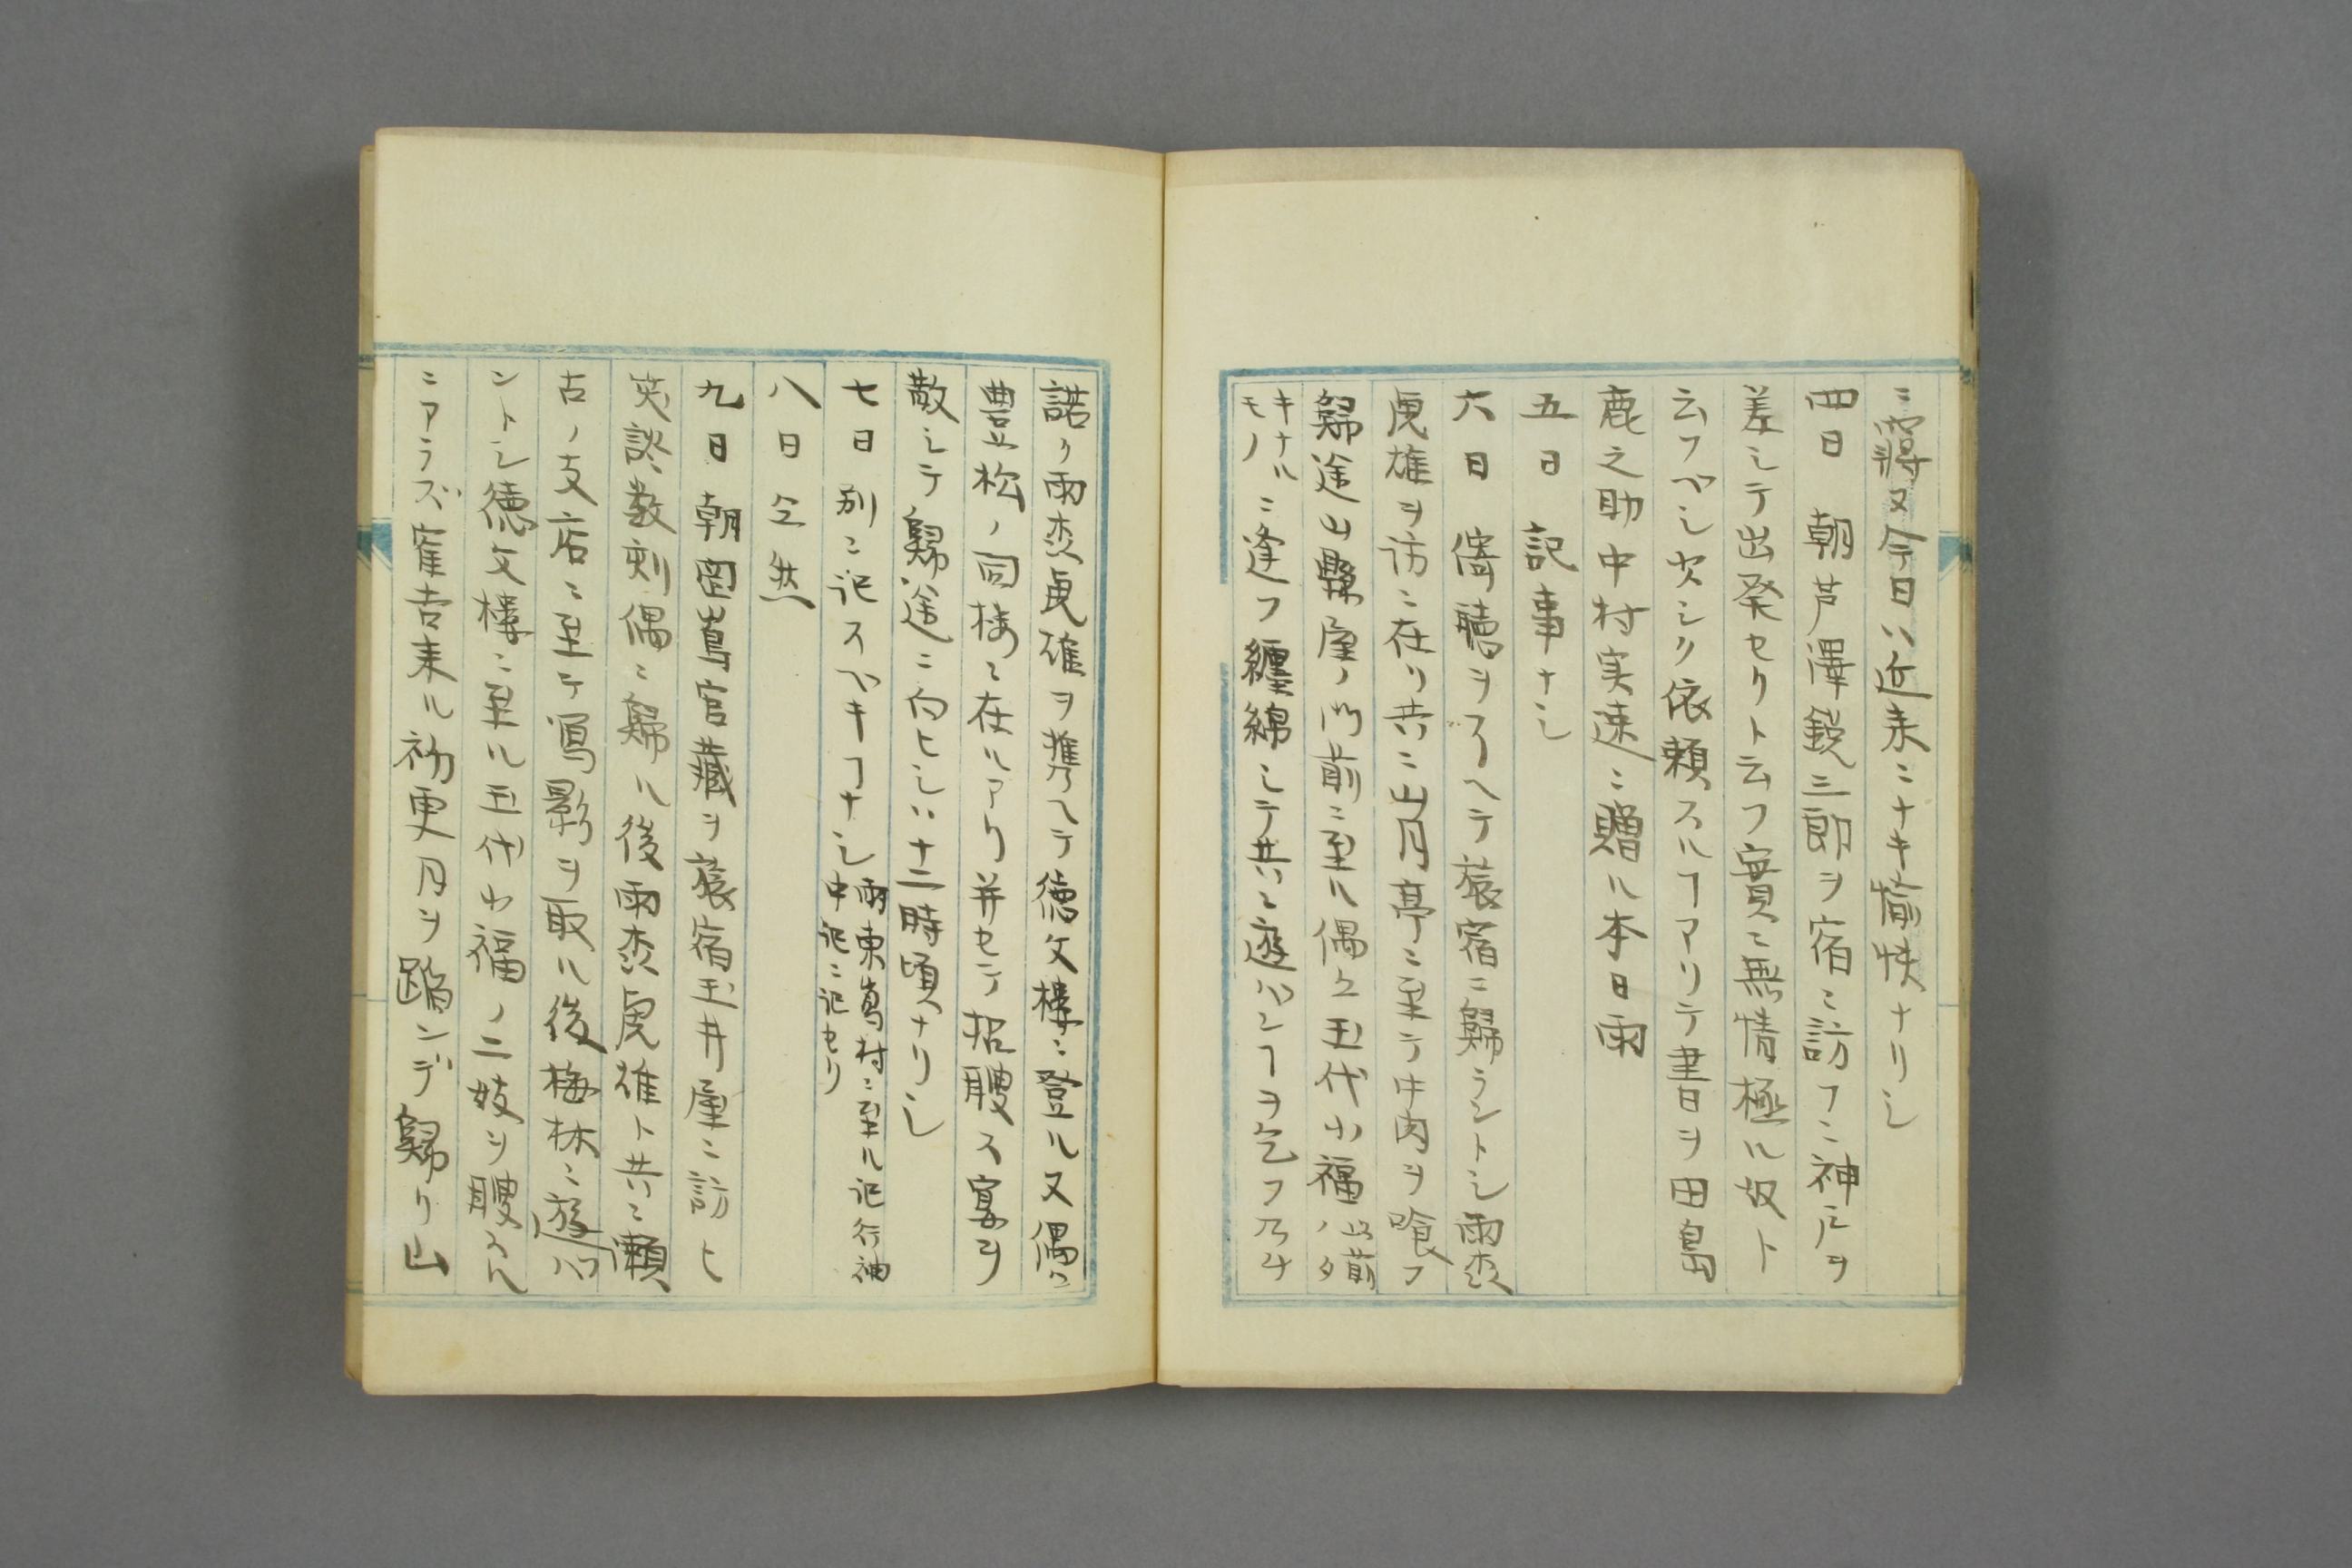 ニ寤又今日ハ近来ニナキ愉快ナリシ
四日 朝芦澤鋭三郎ヲ宿ニ訪フニ神戸ヲ
差シテ出発セリト云フ實ニ無情極ル奴ト
云フベシ久シク依頼スルヿアリテ書ヲ田島
鹿之助中村実速ニ贈ル本日雨
五日 記事ナシ
六日 傍聴ヲヲヘテ旅宿ニ歸ラントシ雨葉
虎雄ヲ訪ニ在リ共ニ山月亭ニ至テ牛肉ヲ喰フ
歸途山縣屋ノ門前ニ至ル偶々玉代小福ノ以前
キナルモノニ逢フ纒綿シテ共ニ遊ハンヿヲ乞フ乃チ
諾ク雨葉虎雄ヲ携ヘテ徳文樓ニ登ル又偶々
豊松ノ同楼ニ在ルアリ并セテ招聘ス宴ヲ
散シテ歸途ニ向ヒシハ十二時頃ナリシ
七日 別ニ記スベキヿナシ雨東嶌村ニ至ル記行袖
中記ニ記セリ
八日 仝然
九日 朝岡嶌官藏ヲ旅宿玉井屋ニ訪ヒ
笑談数刻偶ニ歸ル後雨葉虎雄ト共ニ瀬
古ノ支店ニ至テ寫影ヲ取ル後梅林ニ遊ハ
ントシ徳文樓ニ至ル玉代小福ノ二妓ヲ聘スル
ニアラズ寉吉来ル初更月ヲ踏ンデ歸リ山